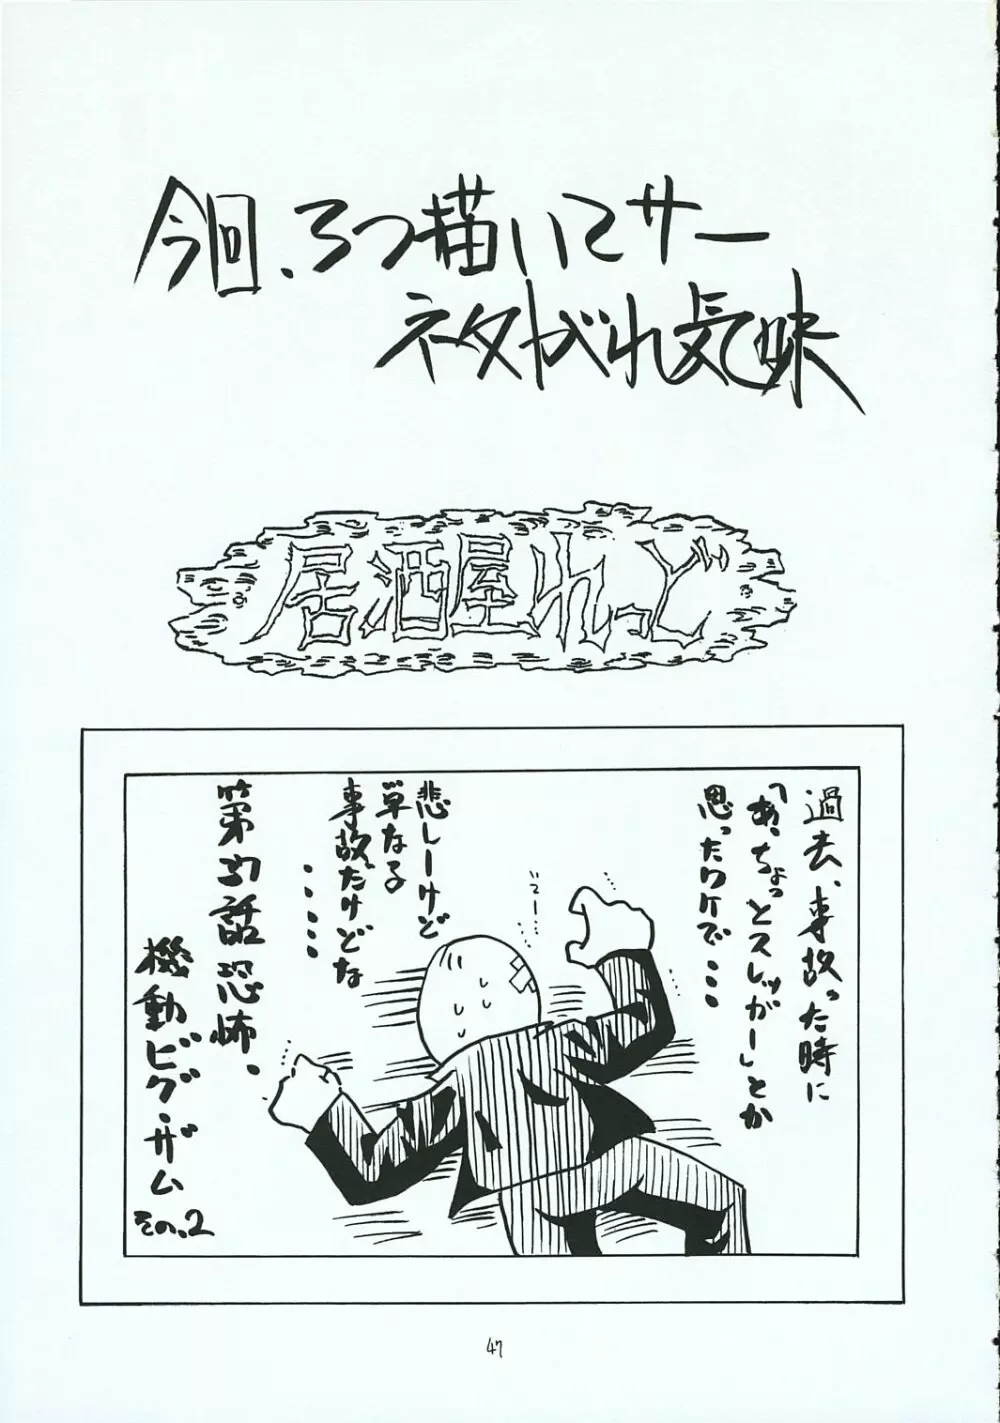 今回、3つ描いてサー
ネタがれ気味
居酒屋れっど
過去、事故った時に
「あ、ちょっとスレッガー」とか
思ったワケで・・・
悲しーけど
単なる
事故だけどな
・・・・・
第37話恐怖、
機動ビグ・ザム
その、2
47